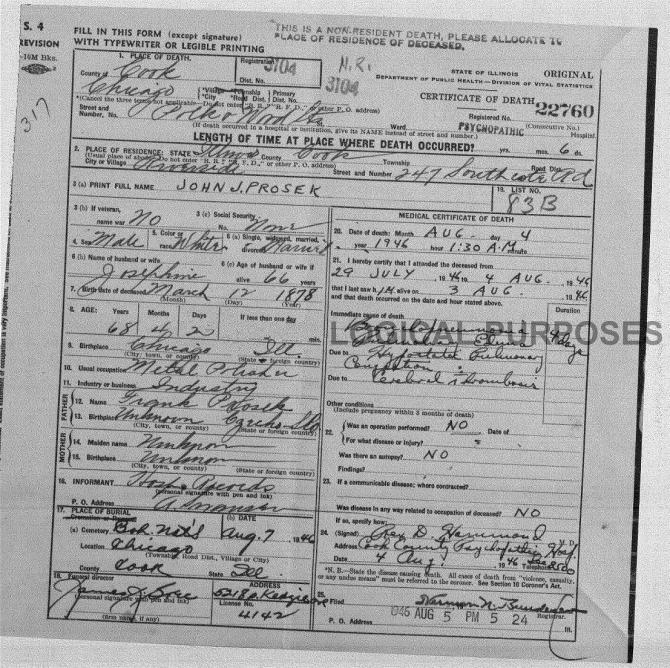 S. 4
REVISION
317
FILL IN THIS FORM (except signature)
WITH TYPEWRITER OR LEGIBLE PRINTING
THIS IS A NON-RESIDENT DEATH, PLEASE ALLOCATE TO
PLACE OF RESIDENCE OF DECEASED.
N.R.
3104
STATE OF ILLINOIS
ORIGINAL
DEPARTMENT OF PUBLIC HEALTH—DIVISION OF VITAL STATISTICS
CERTIFICATE OF DEATH 22760
Registered No. (Consecutive No.)
1. PLACE OF DEATH. Registration Dist. No. 3104
County of Cook
Chicago
*(Cancel the three terms not applicable—Do not enter "R. R.", "R. F. D.," or other P. O. address)
Street and Number, No. Polk & Wood Sts Ward PSYCHOPATHIC Hospital
(If death occurred in a hospital or institution, give its NAME instead of street and number.)
LENGTH OF TIME AT PLACE WHERE DEATH OCCURRED? yrs. mos. 6 ds.
2. PLACE OF RESIDENCE: STATE Illinois County Cook Township Road Dist.
City or Village Riverside Street and Number 247 Southcote Rd
3 (a) PRINT FULL NAME JOHN J. PROSEK
19. LIST NO. 83B
3 (b) If veteran, name war NO 3 (c) Social Security No. None
4. Sex Male 5. Color or race White 6 (a) Single, widowed, married, divorced Married
6 (b) Name of husband or wife Josephine 6 (c) Age of husband or wife if alive 66 years
7. Birth date of deceased March 12 1878
(Month) (Day) (Year)
8. AGE: Years Months Days If less than one day
68 4 2 min.
9. Birthplace Chicago Ill.
(City, town, or county) (State or foreign country)
10. Usual occupation Metal Polisher
11. Industry or business Industry
FATHER
12. Name Frank Prosek
13. Birthplace Unknown Czecho-Slo
(City, town, or county) (State or foreign country)
MOTHER
14. Maiden name Unknown
15. Birthplace Unknown
(City, town, or county) (State or foreign country)
16. INFORMANT Hosp. Records
(personal signature with pen and ink)
P. O. Address
17. PLACE OF BURIAL (b) DATE
Cremation or Removal
(a) Cemetery Boh. Nat'l Aug. 7, 1946
Location Chicago
(Township, Road Dist., Village or City)
Cook State Ill.
18. Funeral director ADDRESS
(personal signature with pen and ink) License No.
4142
(firm name, if any)
MEDICAL CERTIFICATE OF DEATH
20. Date of death: Month AUG. day 4
year 1946 hour 1:30 A.M minute
21. I hereby certify that I attended the deceased from
29 JULY 1946 to 4 AUG. 1946
that I last saw him alive on 3 AUG. 1946
and that death occurred on the date and hour stated above.
Duration
Immediate cause of death
Due to Hypostatic Pulmonary
Congestion
Due to Cerebral thrombosis
4 days
LOGICAL PURPOSES
Other conditions
(Include pregnancy within 3 months of death)
22. Was an operation performed? NO Date of
For what disease or injury?
Was there an autopsy? NO
Findings?
23. If a communicable disease; where contracted?
Was disease in any way related to occupation of deceased? NO
If so, specify how:
24. (Signed) Ray D. Hammond M. D.
Address Cook County Psychopathic Hosp.
Date 4 Aug. 1946 Telephone
*N. B.—State the disease causing death. All cases of death from "violence, casualty,
or any undue means" must be referred to the coroner. See Section 10 Coroner's Act.
25. Filed Herman N. Bundesen Registrar.
1946 AUG 5 PM 5 24
P. O. Address Ill.